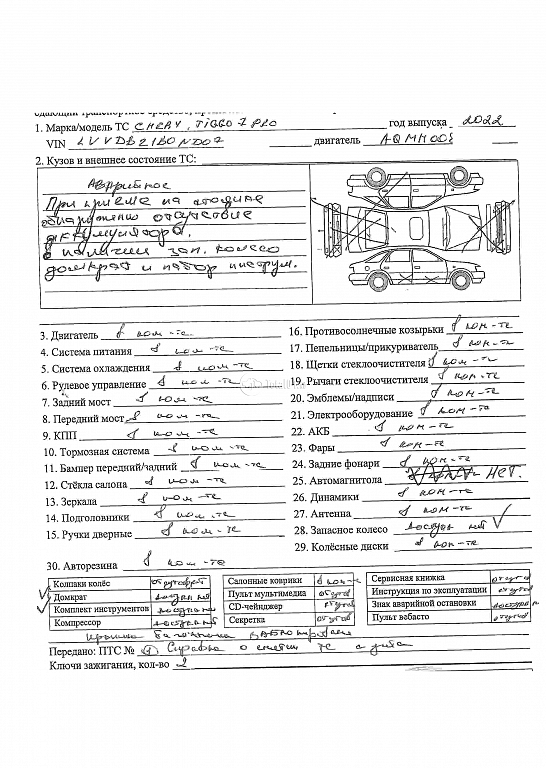 1. Марка/модель ТС CHERY, TIGGO 7 PRO год выпуска 2022
VIN двигатель
2. Кузов и внешнее состояние ТС:
Аварийное
При приёме на стоянке
обнаружено отсутствие
аккумулятора.
В наличии зап. колесо
домкрат и набор инструм.
3. Двигатель в ком-те
4. Система питания в ком-те
5. Система охлаждения в ком-те
6. Рулевое управление в ком-те
7. Задний мост в ком-те
8. Передний мост в ком-те
9. КПП в ком-те
10. Тормозная система в ком-те
11. Бампер передний/задний в ком-те
12. Стёкла салона в ком-те
13. Зеркала в ком-те
14. Подголовники в ком-те
15. Ручки дверные в ком-те
16. Противосолнечные козырьки в ком-те
17. Пепельницы/прикуриватель в ком-те
18. Щетки стеклоочистителя в ком-те
19. Рычаги стеклоочистителя в ком-те
20. Эмблемы/надписи в ком-те
21. Электрооборудование в ком-те
22. АКБ в ком-те
23. Фары в ком-те
24. Задние фонари в ком-те
25. Автомагнитола нет.
26. Динамики в ком-те
27. Антенна в ком-те
28. Запасное колесо
29. Колёсные диски
30. Авторезина в ком-те
Колпаки колёс
Домкрат
Комплект инструментов
Компрессор
Салонные коврики в ком-
Пульт мультимедиа отсутств
CD-чейнджер отсутств
Секретка отсутств
Сервисная книжка отсутств
Инструкция по эксплуатации отсутств
Знак аварийной остановки
Пульт вебасто отсутств
крышка багажника
Передано: ПТС № Справка о снятии ТС с учёта
Ключи зажигания, кол-во 2